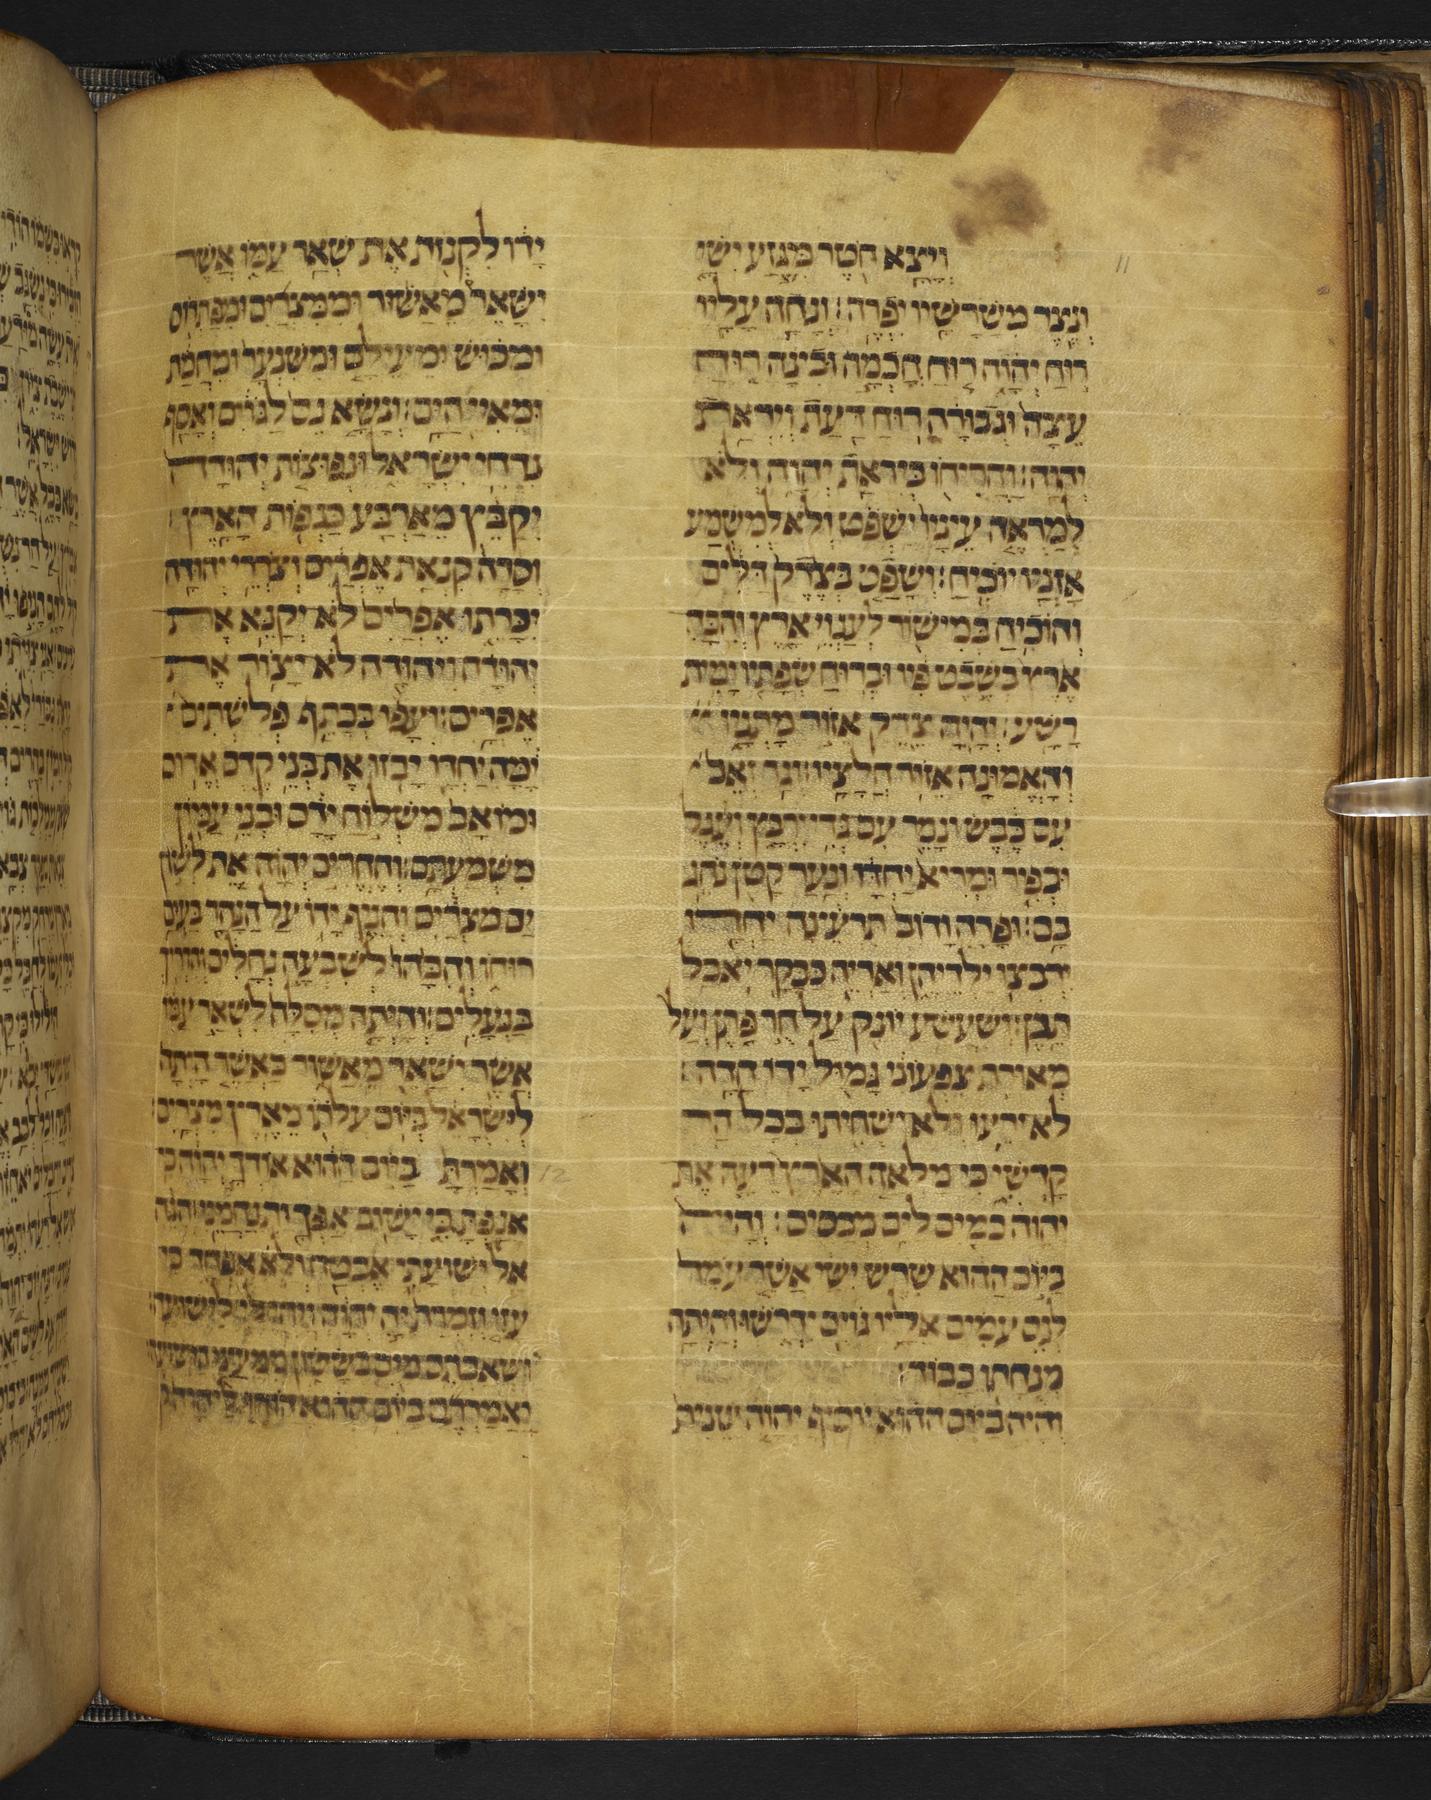 11
ויצא חטר מגזע ישי
ונצר משרשיו יפרה׃ ונחה עליו
רוח יהוה רוח חכמה ובינה רוח
עצה וגבורה רוח דעת ויראת
יהוה׃ והריחו ביראת יהוה ולא
למראה עיניו ישפט ולא למשמע
אזניו יוכיח׃ ושפט בצדק דלים
והוכיח במישור לענוי ארץ והכה
ארץ בשבט פיו וברוח שפתיו ימית
רשע׃ והיה צדק אזור מתניו
והאמונה אזור חלציו׃ וגר זאב
עם כבש ונמר עם גדי ירבץ ועגל
וכפיר ומריא יחדו ונער קטן נהג
בם׃ ופרה ודוב תרעינה יחדו
ירבצו ילדיהן ואריה כבקר יאכל
תבן׃ ושעשע יונק על חר פתן ועל
מאורת צפעוני גמול ידו הדה׃
לא ירעו ולא ישחיתו בכל הר
קדשי כי מלאה הארץ דעה את
יהוה כמים לים מכסים׃ והיה
ביום ההוא שרש ישי אשר עמד
לנס עמים אליו גוים ידרשו והיתה
מנחתו כבוד׃
והיה ביום ההוא יוסיף יהוה שנית
ידו לקנות את שאר עמו אשר
ישאר מאשור וממצרים ומפתרוס
ומכוש ומעילם ומשנער ומחמת
ומאיי הים׃ ונשא נס לגוים ואסף
נדחי ישראל ונפצות יהודה
יקבץ מארבע כנפות הארץ׃
וסרה קנאת אפרים וצררי יהודה
יכרתו אפרים לא יקנא את
יהודה ויהודה לא יצור את
אפרים׃ ועפו בכתף פלשתים
ימה יחדו יבזו את בני קדם אדום
ומואב משלוח ידם ובני עמון
משמעתם׃ והחרים יהוה את לשון
ים מצרים והניף ידו על הנהר בעים
רוחו והכהו לשבעה נחלים והדריך
בנעלים׃ והיתה מסלה לשאר עמו
אשר ישאר מאשור כאשר היתה
לישראל ביום עלתו מארץ מצרים׃
12 ואמרת ביום ההוא אודך יהוה כי
אנפת בי ישוב אפך ותנחמני׃ הנה
אל ישועתי אבטח ולא אפחד כי
עזי וזמרת יה יהוה ויהי לי לישועה׃
ושאבתם מים בששון ממעיני הישועה׃
ואמרתם ביום ההוא הודו ליהוה